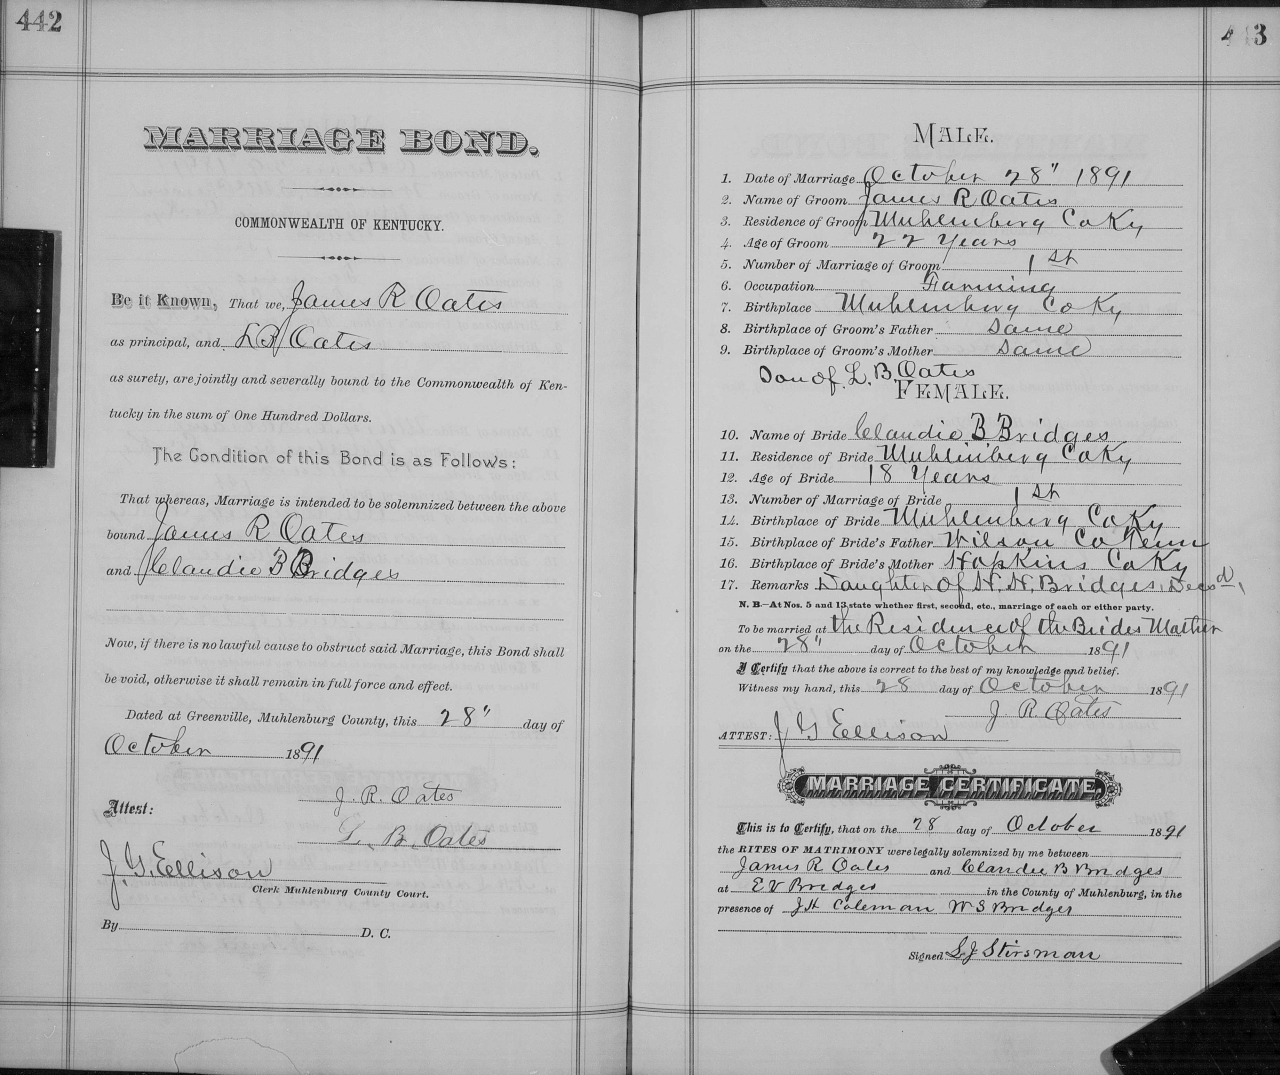 442
MARRIAGE BOND.
COMMONWEALTH OF KENTUCKY.
Be it Known, That we, James R Oates
as principal, and L B Oates
as surety, are jointly and severally bound to the Commonwealth of Ken-
tucky in the sum of One Hundred Dollars.
The Condition of this Bond is as Follows:
That whereas, Marriage is intended to be solemnized between the above
bound James R Oates
and Claudie B Bridges
Now, if there is no lawful cause to obstruct said Marriage, this Bond shall
be void, otherwise it shall remain in full force and effect.
Dated at Greenville, Muhlenburg County, this 28" day of
October 1891
Attest:
J. R. Oates
L. B. Oates
J. G. Ellison
Clerk Muhlenburg County Court.
By D. C.
443
MALE.
1. Date of Marriage October 28" 1891
2. Name of Groom James R Oates
3. Residence of Groom Muhlenberg Co Ky
4. Age of Groom 22 Years
5. Number of Marriage of Groom 1st
6. Occupation Farming
7. Birthplace Muhlenberg Co Ky
8. Birthplace of Groom's Father Same
9. Birthplace of Groom's Mother Same
Son of L. B. Oates
FEMALE.
10. Name of Bride Claudie B Bridges
11. Residence of Bride Muhlenberg Co Ky
12. Age of Bride 18 Years
13. Number of Marriage of Bride 1st
14. Birthplace of Bride Muhlenberg Co Ky
15. Birthplace of Bride's Father Wilson Co Tenn
16. Birthplace of Bride's Mother Hopkins Co Ky
17. Remarks Daughter of H. H. Bridges, Decd,
N. B.—At Nos. 5 and 13 state whether first, second, etc., marriage of each or either party.
To be married at the Residence of the Brides Mother
on the 28" day of October 1891
I Certify that the above is correct to the best of my knowledge and belief.
Witness my hand, this 28 day of October 1891
J R Oates
ATTEST: J G Ellison
MARRIAGE CERTIFICATE.
This is to Certify, that on the 28 day of October 1891
the RITES OF MATRIMONY were legally solemnized by me between
James R Oates and Claudie B Bridges
at E V Bridges in the County of Muhlenburg, in the
presence of J H Coleman W S Bridges
Signed Stirsman